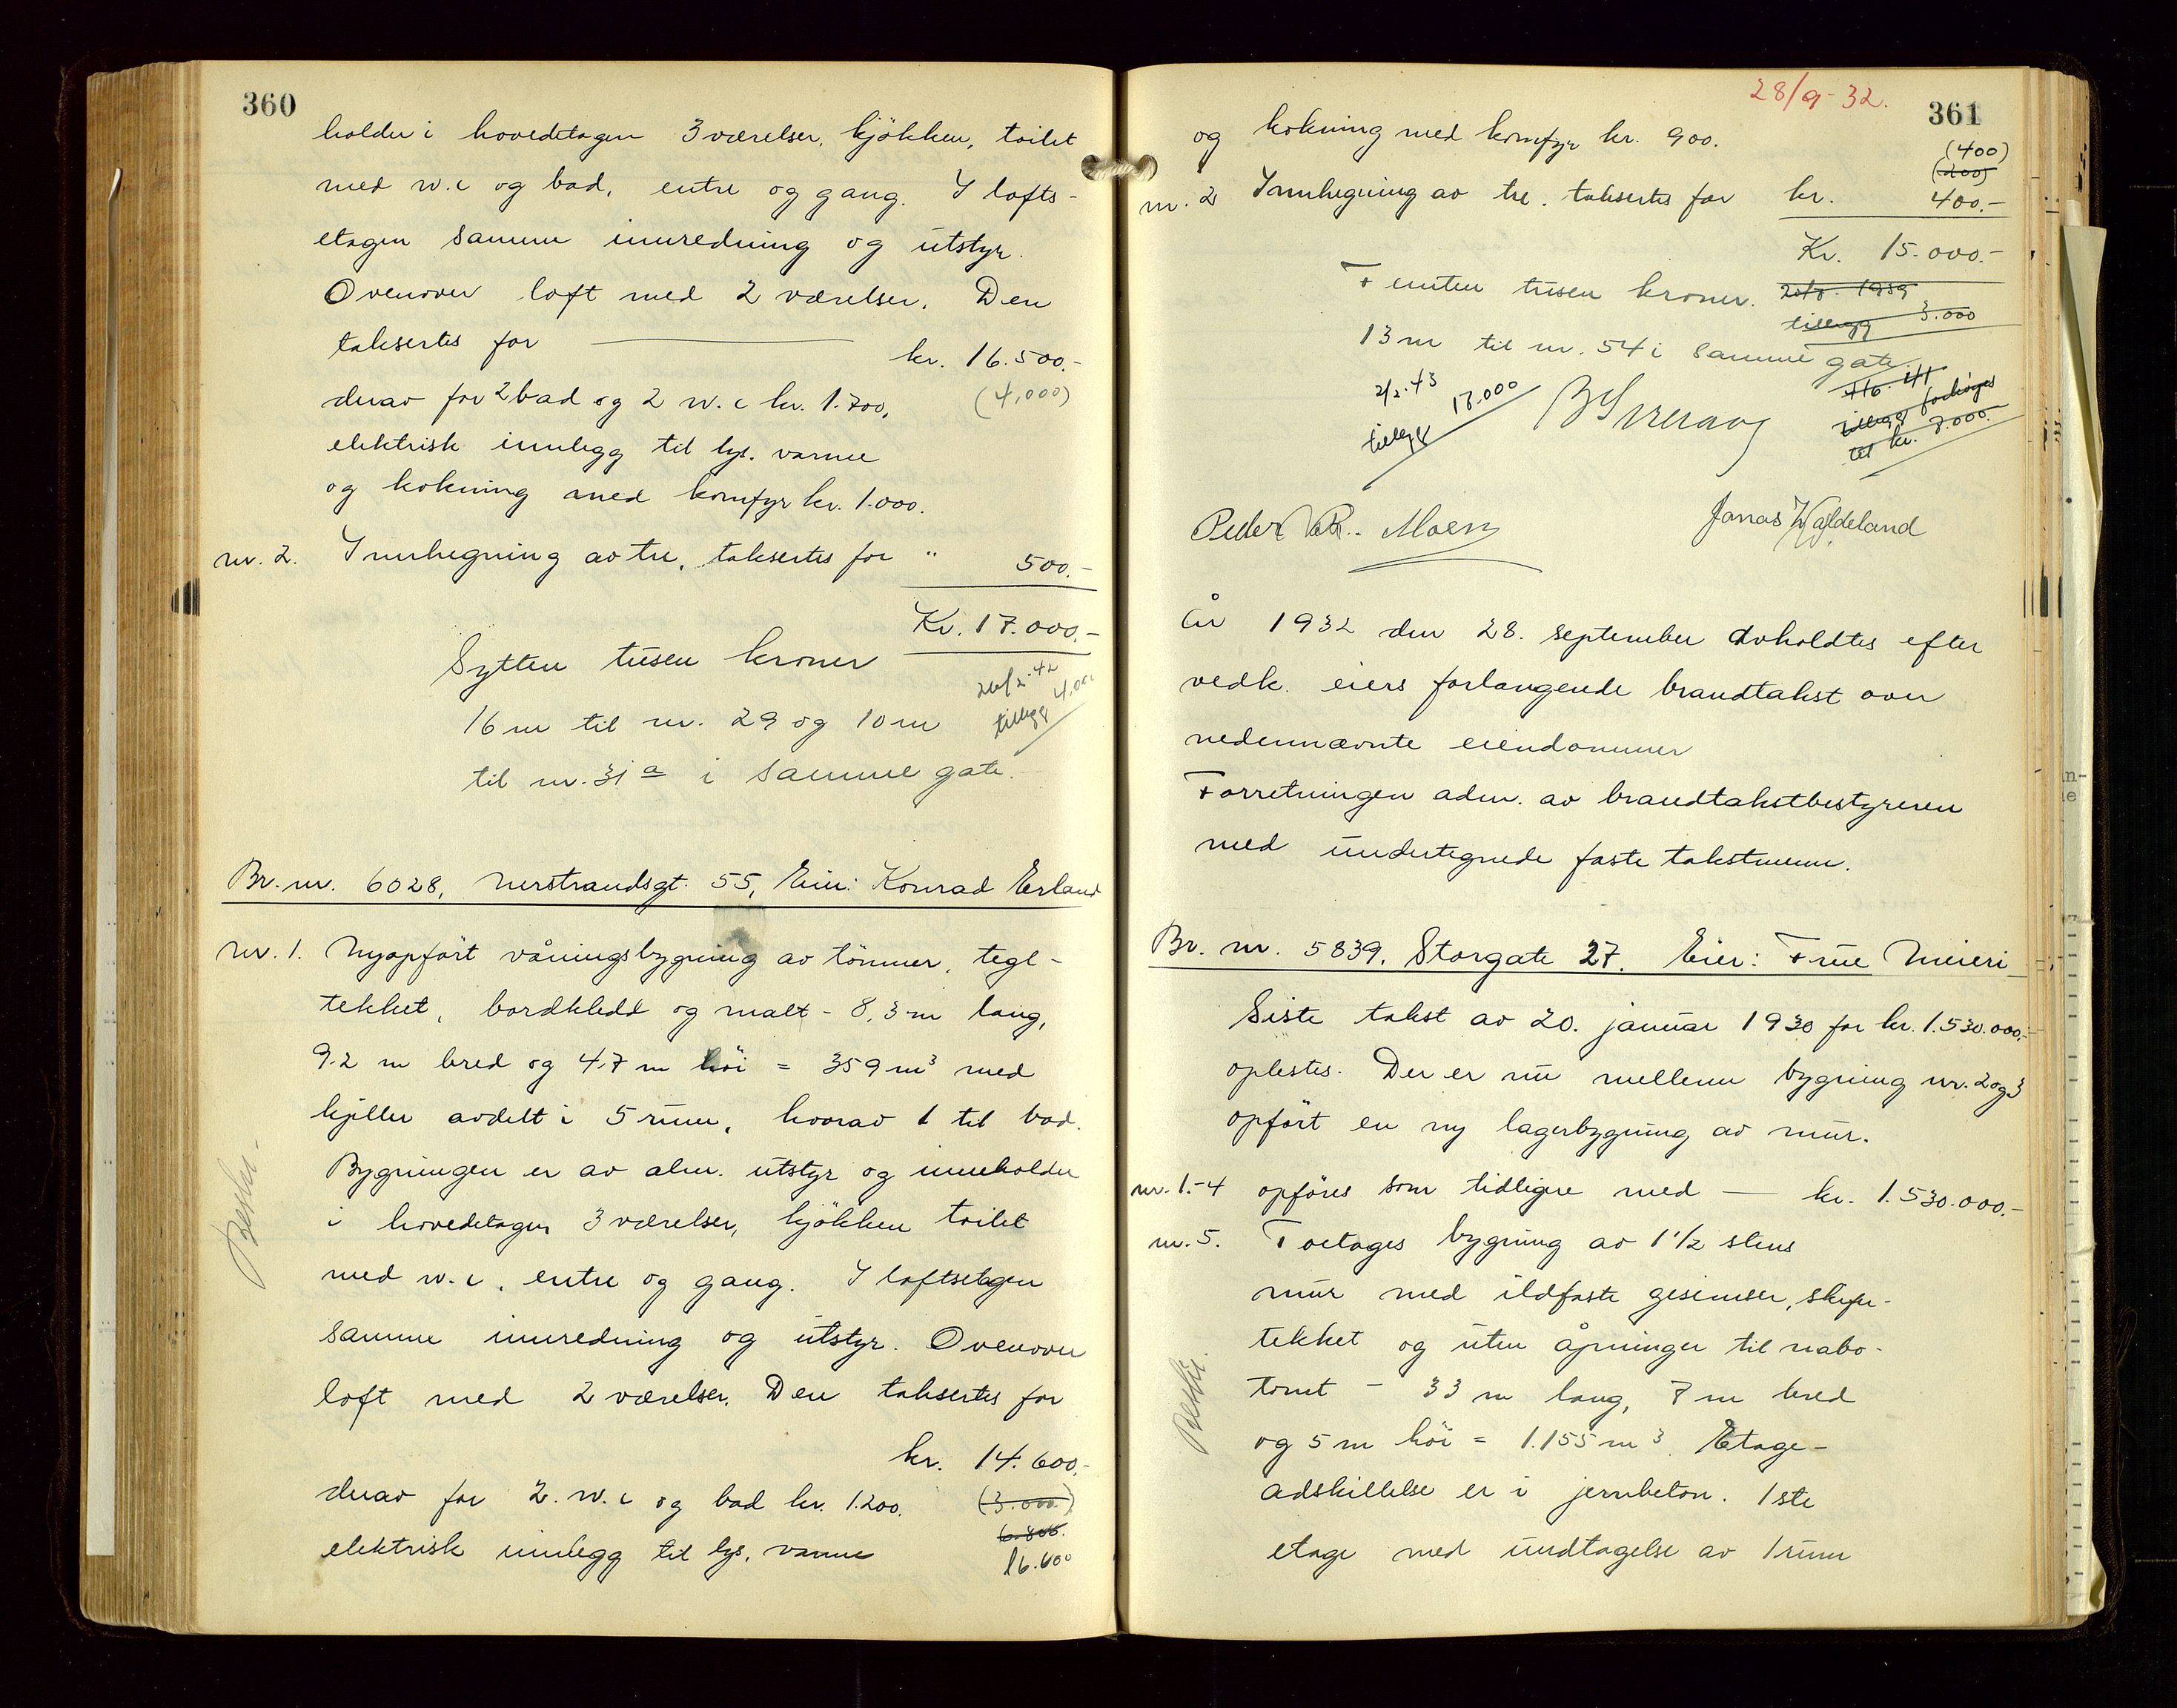 360
holder i hovedetagen 3 værelser, kjökken, toilet
med w.c og bad, entre og gang. I lofts-
etagen samme innredning og utstyr.
Ovenover loft med 2 værelser. Den
taksertes for kr. 16.500.-
derav for 2 bad og 2 w.c kr. 1.700, (4,000)
elektrisk innlegg til lys, varme
og kokning med komfyr kr. 1.000.
nr. 2. Innhegning av tre, taksertes for " 500.-
Kr. 17.000.-
Sytten tusen kroner
26/2.42
tillegg 4.000
16 m til nr. 29 og 10 m
til nr. 31 a i samme gate.
Br. nr. 6028, Nerstrandsgt. 55, Eier: Konrad Erland
nr. 1. Nyopfört våningsbygning av tömmer, tegl-
tekket, bordkledd og malt - 8,3 m lang,
9.2 m bred og 4.7 m höi = 359 m³ med
kjeller avdelt i 5 rum, hvorav 1 til bad.
Bygningen er av alm. utstyr og inneholder
i hovedetagen 3 værelser, kjökken toilet
med w.c, entre og gang. I loftsetagen
samme innredning og utstyr. Ovenover
loft med 2 værelser. Den taksertes for
kr. 14.600.-
derav for 2. w.c og bad kr. 1.200. (3.000)
elektrisk innlegg til lys, varme 6.800.
16.600
Beskr.
28/9-32.
361
og kokning med komfyr kr. 900.
(400)
(200)
nr. 2 Innhegning av tre, taksertes for kr. 400.-
Kr. 15.000.-
Femten tusen kroner.
1939
tillegg 3.000
13 m til nr. 54 i samme gate
2/2.43
tillegg 17.000
tillegg forhöies
til kr. 7.000.-
Peder R. Moen
Jonas Haldeland
År 1932 den 28. september avholdtes efter
vedk. eiers forlangende brandtakst over
nedennævnte eiendommer
Forretningen adm. av brandtakstbestyreren
med undertegnede faste takstmenn.
Br. nr. 5839. Storgate 27. Eier: Fue Meieri
Siste takst av 20. januar 1930 for kr. 1.530.000,-
oplestes. Der er nu mellem bygning nr. 2 og 3
opfört en ny lagerbygning av mur.
nr. 1.-4 opföres som tidligere med — kr. 1.530.000.-
nr. 5. Toetages bygning av 1 1/2 stens
mur med ildfaste gesimser, skifer-
tekket og uten åpninger til nabo-
tomt - 33 m lang, 7 m bred
og 5 m höi = 1.155 m³. Etage-
adskillelse er i jernbeton. 1ste
etage med undtagelse av 1 rum
Beskr.